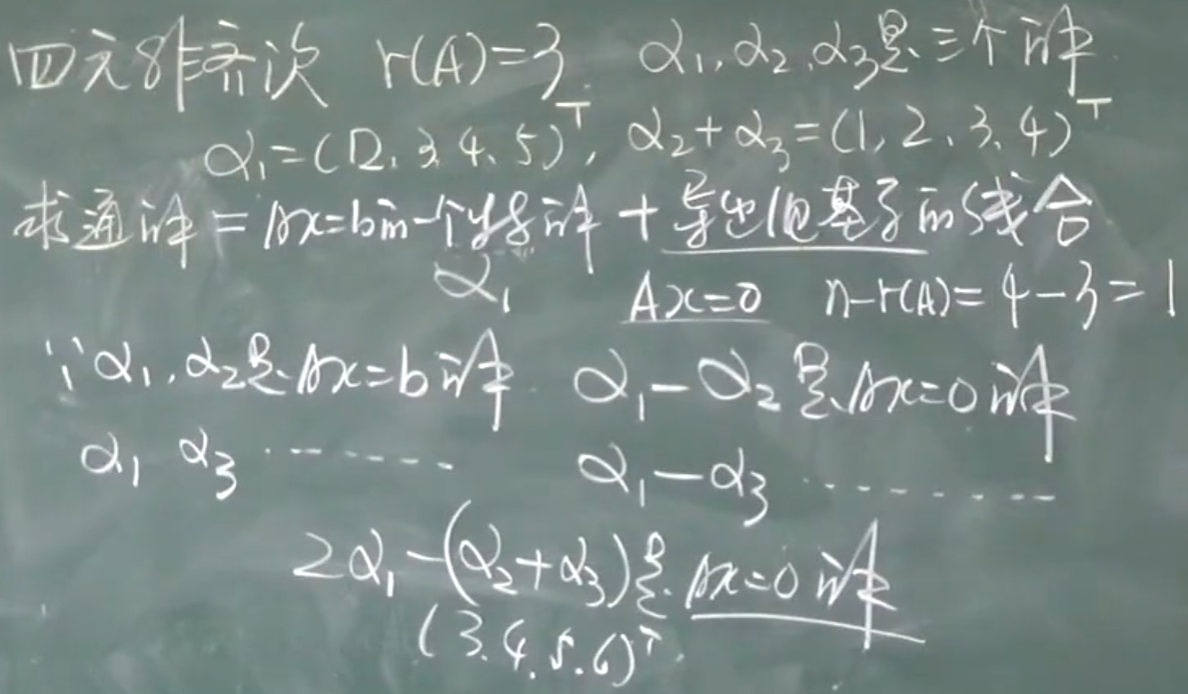 四元非齐次 r(A)=3. α₁,α₂,α₃是三个解.
α₁=(2,3,4,5)ᵀ, α₂+α₃=(1,2,3,4)ᵀ
求通解=Ax=b的一个特解+导出组基系的线合
α₁ Ax=0 n-r(A)=4-3=1
∵α₁,α₂是Ax=b解. α₁-α₂是Ax=0解
α₁ α₃ ------- α₁-α₃ ---------
2α₁-(α₂+α₃)是Ax=0解
(3.4.5.6)ᵀ.